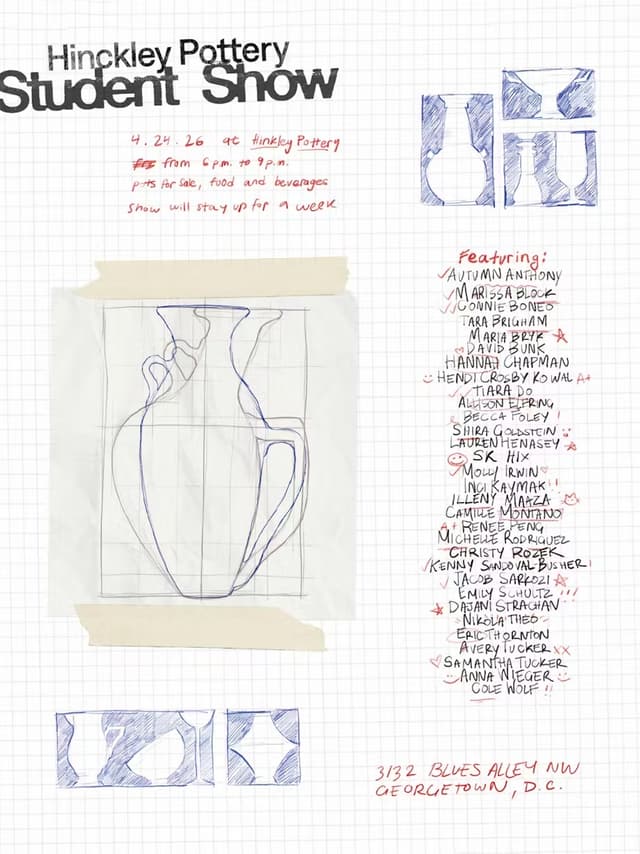 Hinckley Pottery
Student Show
4.24.26 at Hinkley Pottery
from 6 p.m. to 9 p.m.
pots for sale, food and beverages
show will stay up for a week
Featuring:
AUTUMN ANTHONY
MARISSA BLOCK
CONNIE BONEO
TARA BRIGHAM
MARIA BRYK
DAVID BUNK
HANNAH CHAPMAN
HENDI CROSBY KOWAL A+
TIARA DO
ALLYSON ELFRING
BECCA FOLEY !
SHIRA GOLDSTEIN
LAUREN HENASEY
SK HIX
MOLLY IRWIN
INCI KAYMAK !!
ILLENY MAAZA
CAMILLE MONTANO
A+ RENEE PENG
MICHELLE RODRIGUEZ
CHRISTY ROZEK
KENNY SANDOVAL-BUSHER !
JACOB SARKOZI
EMILY SCHULTZ !!!
DAJANI STRACHAN
NIKOLA THEO
ERIC THORNTON
AVERY TUCKER XX
SAMANTHA TUCKER
ANNA WIEGER
COLE WOLF !!
3132 BLUES ALLEY NW
GEORGETOWN, D.C.